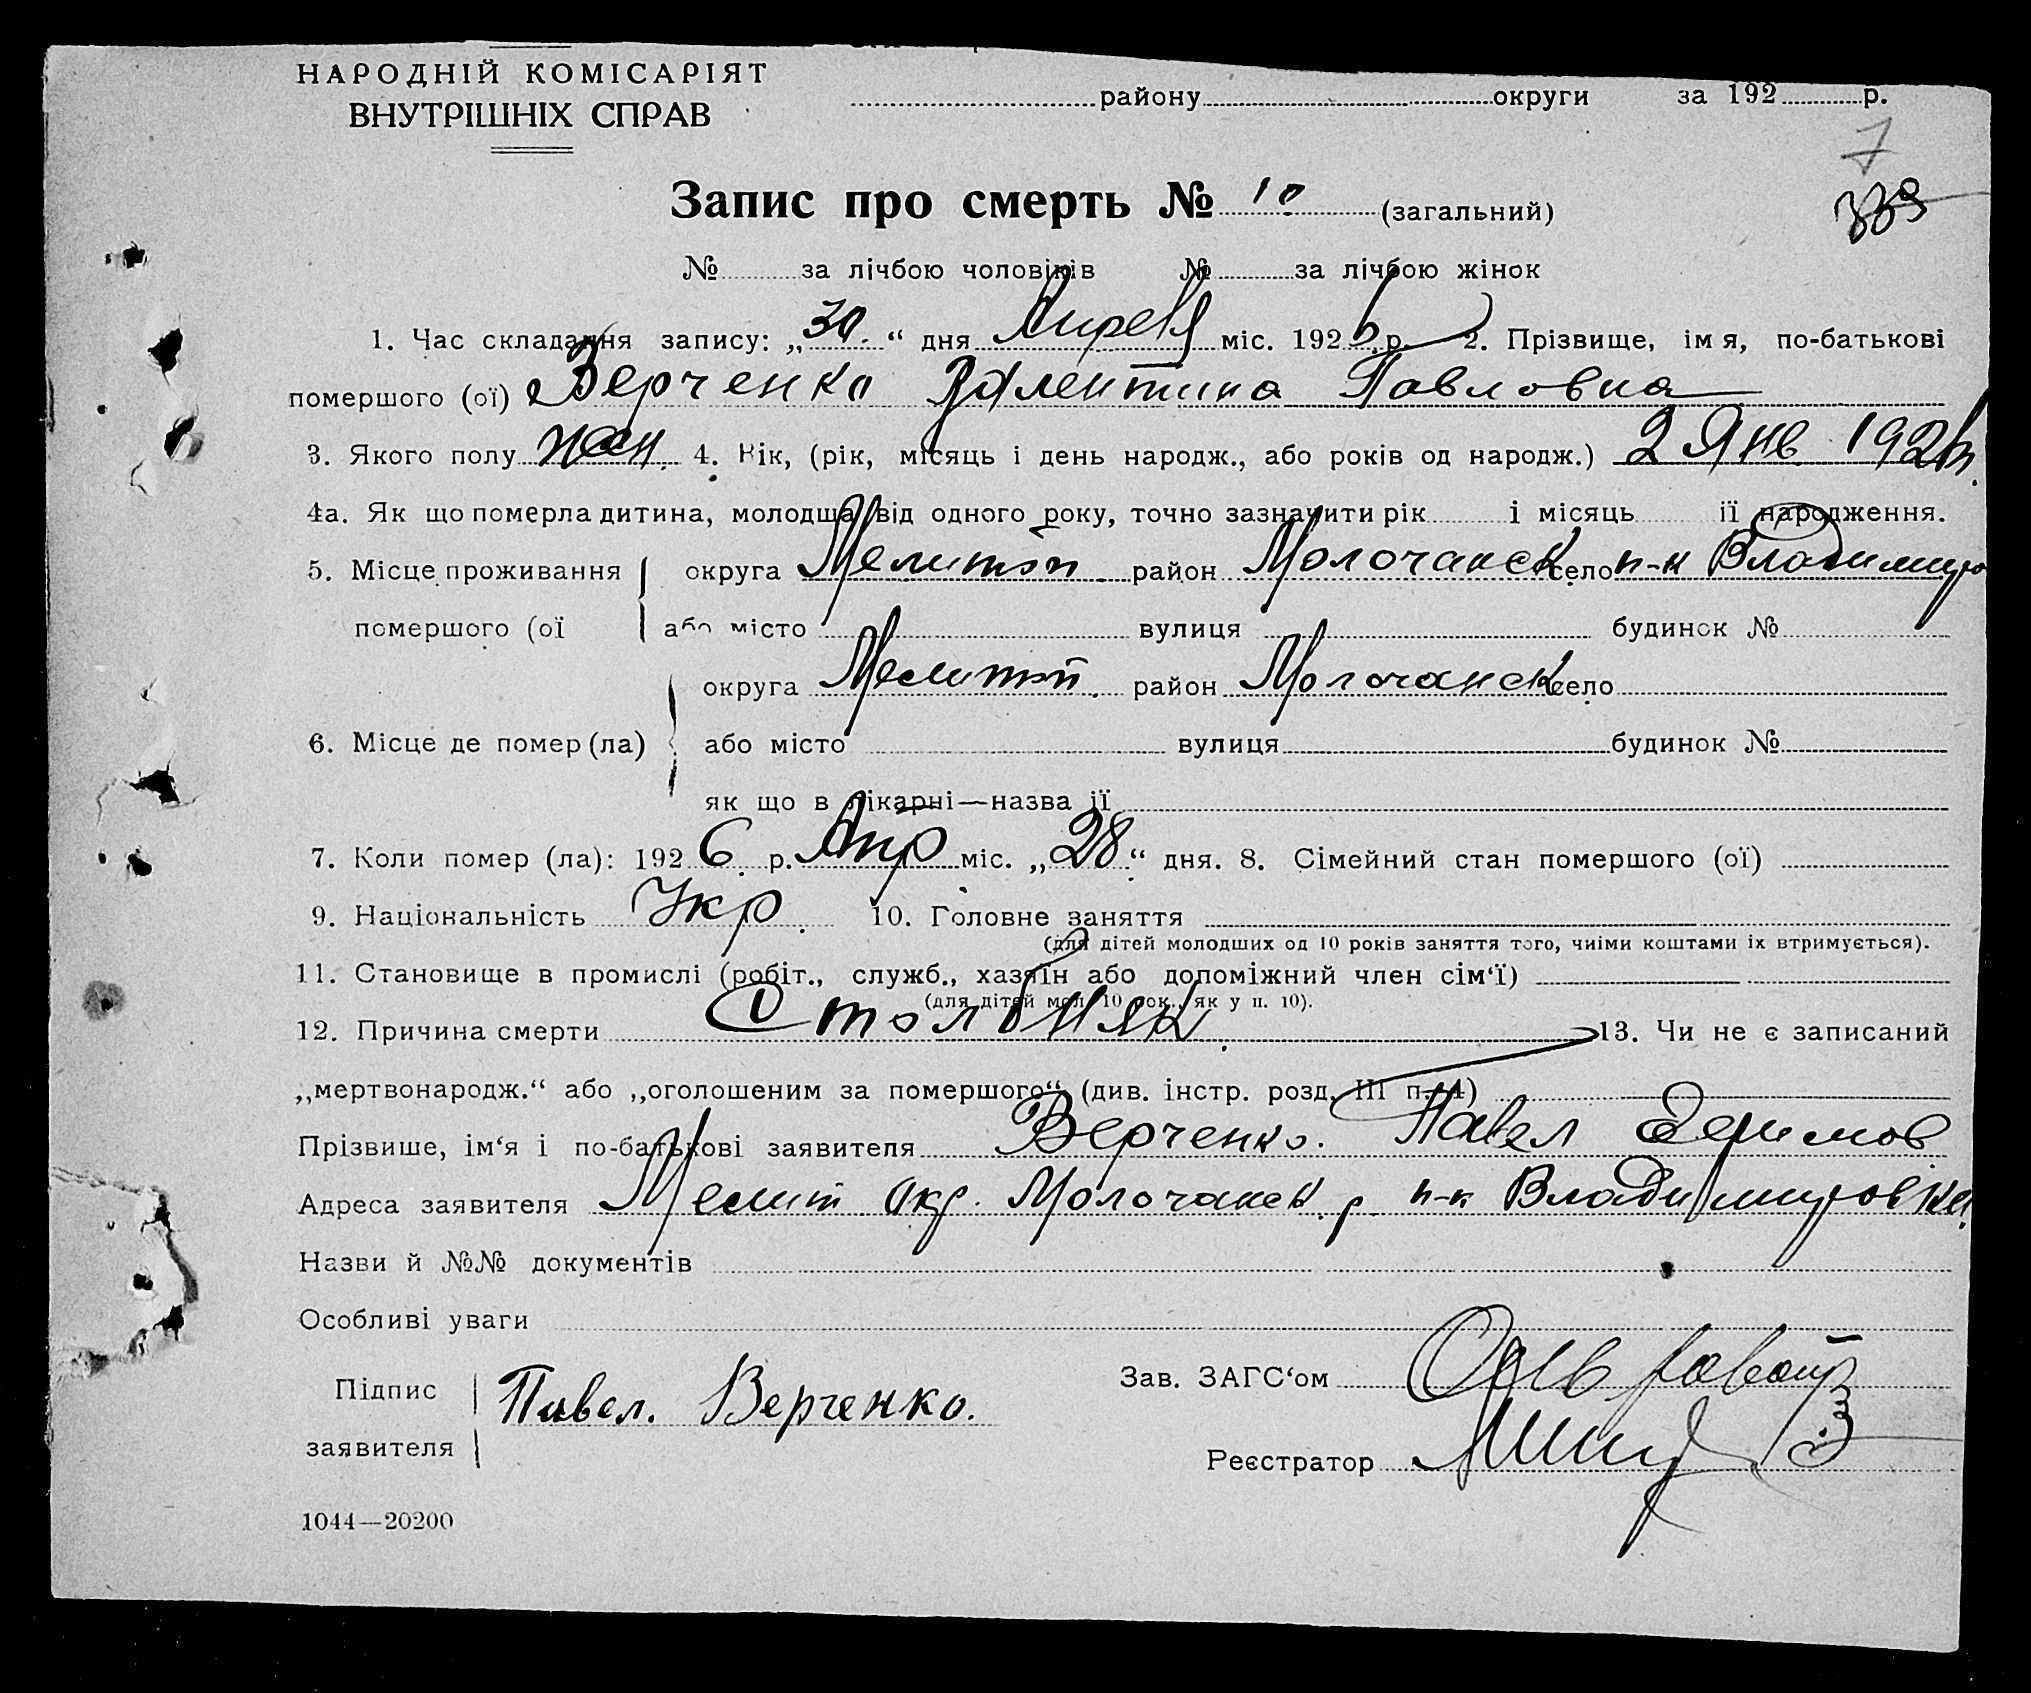 НАРОДНІЙ КОМІСАРІЯТ
ВНУТРІШНІХ СПРАВ
району округи за 192 р.
7
Запис про смерть № 10 (загальний)
339
№ за лічбою чоловіків № за лічбою жінок
1. Час складання запису: „30.“ дня Апреля міс. 1926 р. 2. Прізвище, імя, по-батькові
помершого (ої) Верченко Валентина Павловна
3. Якого полу жен. 4. Вік, (рік, місяць і день народж., або років од народж.) 2 Янв 1926
4а. Як що померла дитина, молодша від одного року, точно зазначити рік і місяць її народження.
5. Місце проживання округа Мелитоп район Молочанск село п-к Владимиро
помершого (ої або місто вулиця будинок №
округа Мелитоп район Молочанск село
6. Місце де помер (ла) або місто вулиця будинок №
як що в лікарні—назва її
7. Коли помер (ла): 1926 р. Апр міс. „28“ дня. 8. Сімейний стан помершого (ої)
9. Національність Укр 10. Головне заняття
(для дітей молодших од 10 років заняття того, чиїми коштами їх втримується).
11. Становище в промислі (робіт., служб., хазяїн або допоміжний член сім‘ї)
(для дітей мол. 10 рок., як у п. 10).
12. Причина смерти Столбняк 13. Чи не є записаний
„мертвонародж.“ або „оголошеним за помершого“ (див. інстр. розд. III п. 4)
Прізвише, ім‘я і по-батькові заявителя Верченко. Павел
Адреса заявителя Мелит окр. Молочанск р п-к Владимировка
Назви й №№ документів
Особливі уваги
Підпис
заявителя
Павел. Верченко.
Зав. ЗАГС‘ом
Реєстратор
1044—20200